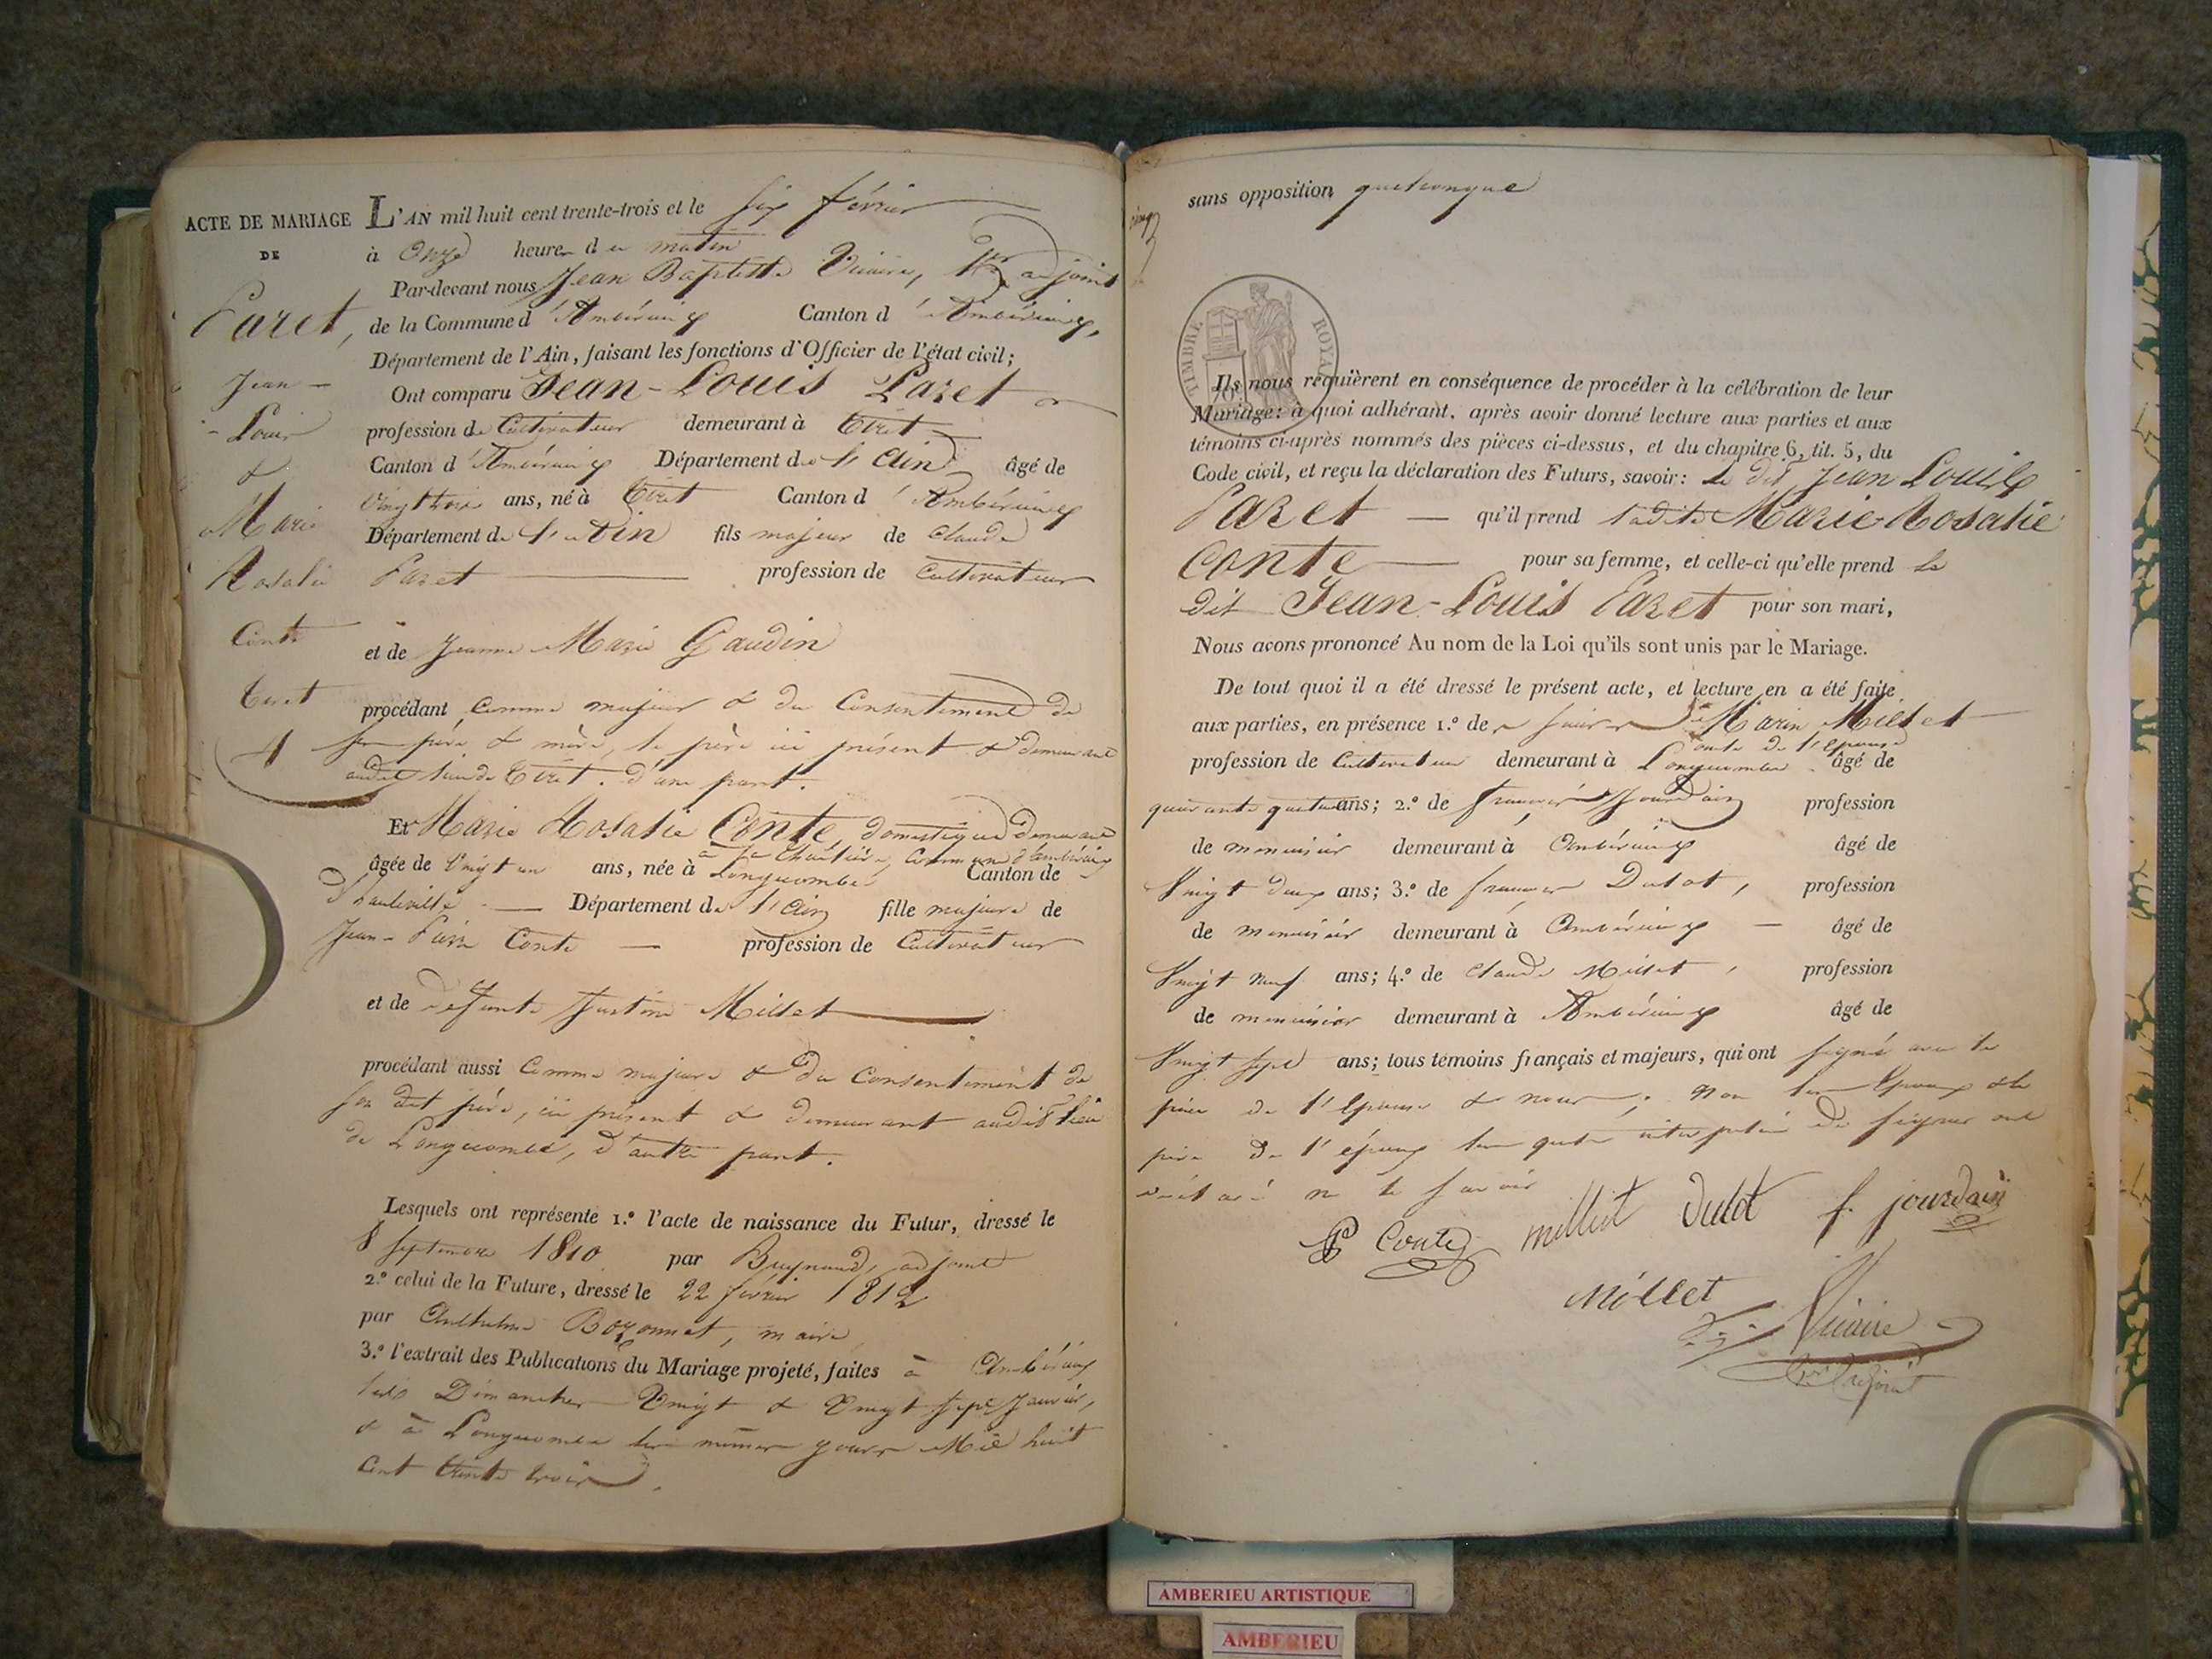 ACTE DE MARIAGE
DE
Paret,
Jean-
-Louis
&
Marie
Rosalie
Conte
Tiret
4
L'AN mil huit cent trente-trois et le six février
à onze heures du matin
Par-devant nous Jean Baptiste Vicaire, 1er adjoint
de la Commune d'Ambérieux Canton d'Ambérieux,
Département de l'Ain, faisant les fonctions d'Officier de l'état civil;
Ont comparu Jean-Louis Paret
profession de Cultivateur demeurant à Tiret
Canton d'Ambérieux Département de l'Ain âgé de
vingt trois ans, né à Tiret Canton d'Ambérieux
Département de l'Ain fils majeur de Claude
Paret profession de Cultivateur
et de Jeanne Marie Gaudin
procédant comme majeur & du Consentement de
ses père & mère, le père ici présent & demeurant
audit lieu de Tiret. d'une part.
Et Marie Rosalie Conte, domestique demeurant
à commune d'ambérieux
âgée de vingt un ans, née à Longecombe Canton de
d'hauteville Département de l'Ain fille majeure de
Jean-Pierre Conte profession de Cultivateur
et de défunte Justine Millet
procédant aussi comme majeure & du consentement de
son dit père, ici présent & demeurant audit lieu
de Longecombe, d'autre part.
Lesquels ont représenté 1.º l'acte de naissance du Futur, dressé le
8 septembre 1810 par adjoint
2.º celui de la Future, dressé le 22 février 1812
par Anthelme Bozonnet, maire
3.º l'extrait des Publications du Mariage projeté, faites à Ambérieux
les Dimanches vingt & vingt sept Janvier,
& à Longecombe les mêmes jours mil huit
cent trente trois.
sans opposition quelconque
TIMBRE ROYAL
70
Ils nous requièrent en conséquence de procéder à la célébration de leur
Mariage: à quoi adhérant, après avoir donné lecture aux parties et aux
témoins ci-après nommés des pièces ci-dessus, et du chapitre 6, tit. 5, du
Code civil, et reçu la déclaration des Futurs, savoir: le dit Jean Louis
Paret qu'il prend ladite Marie Rosalie
Conte pour sa femme, et celle-ci qu'elle prend le
dit Jean-Louis Paret pour son mari,
Nous avons prononcé Au nom de la Loi qu'ils sont unis par le Mariage.
De tout quoi il a été dressé le présent acte, et lecture en a été faite
aux parties, en présence 1.º de Marin Millet
oncle de l'épouse
profession de Cultivateur demeurant à Longecombe âgé de
quarante quatre ans; 2.º de françois Jourdain profession
de menuisier demeurant à Ambérieux âgé de
Vingt deux ans; 3.º de françois Dulot, profession
de menuisier demeurant à Ambérieux âgé de
Vingt neuf ans; 4.º de Claude Millet, profession
de menuisier demeurant à Ambérieux âgé de
Vingt sept ans; tous témoins français et majeurs, qui ont signé avec le
père de l'épouse & nous; non les époux & le
père de l'époux lesquels interpelés de signer ont
déclaré ne le savoir
Conte milliet Dulot f. jourdain
Millet
Vicaire